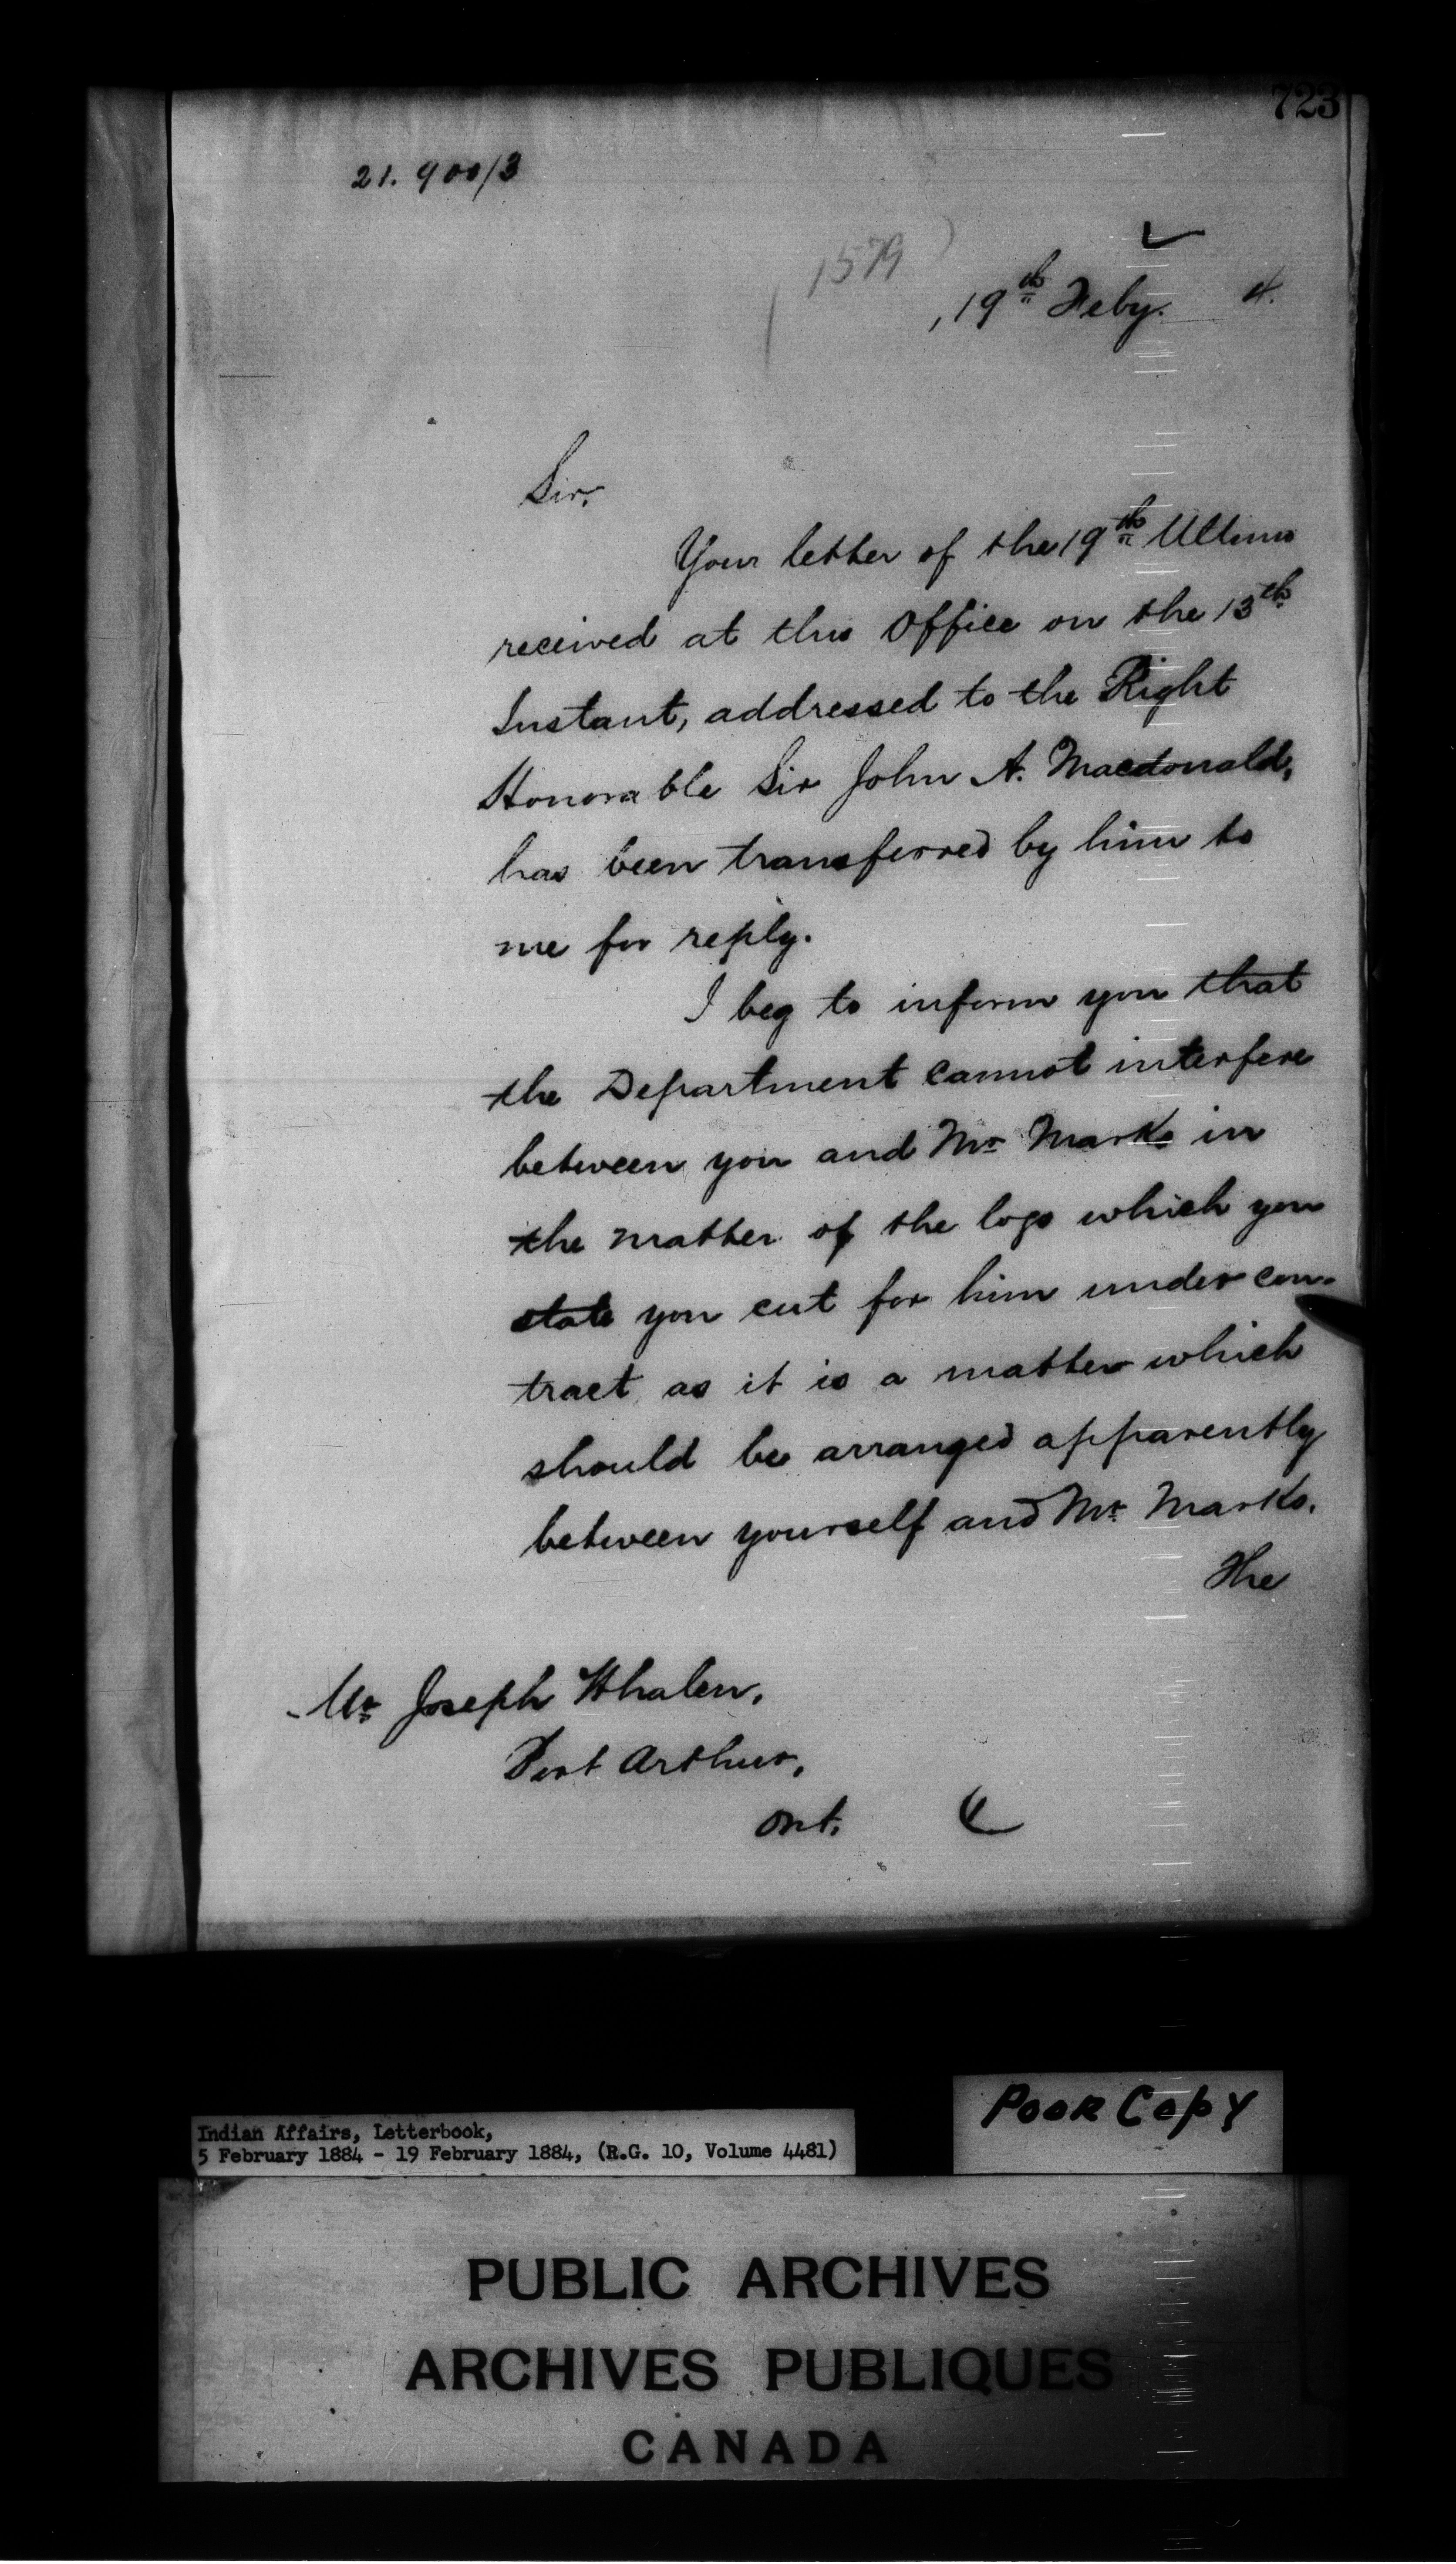 723
21. 900/3
1579
, 19th Feby. 4.
Sir,
Your letter of the 19th Ultimo
received at this Office on the 13th
Instant, addressed to the Right
Honorable Sir John A. Macdonald,
has been transferred by him to
me for reply.
I beg to inform you that
the Department cannot interfere
between you and Mr Marks in
the matter of the logs which you
state you cut for him under con-
tract as it is a matter which
should be arranged apparently
between yourself and Mr Marks.
The
Mr Joseph Whalen,
Port Arthur,
Ont.
Poor Copy
Indian Affairs, Letterbook,
5 February 1884 - 19 February 1884, (R.G. 10, Volume 4481)
PUBLIC ARCHIVES
ARCHIVES PUBLIQUES
CANADA